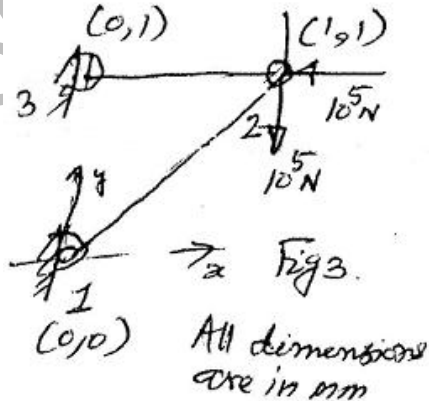 (0,1)
(1,1)
3
2
10⁵N
10⁵N
y
x
Fig 3.
1
(0,0)
All dimensions
are in mm